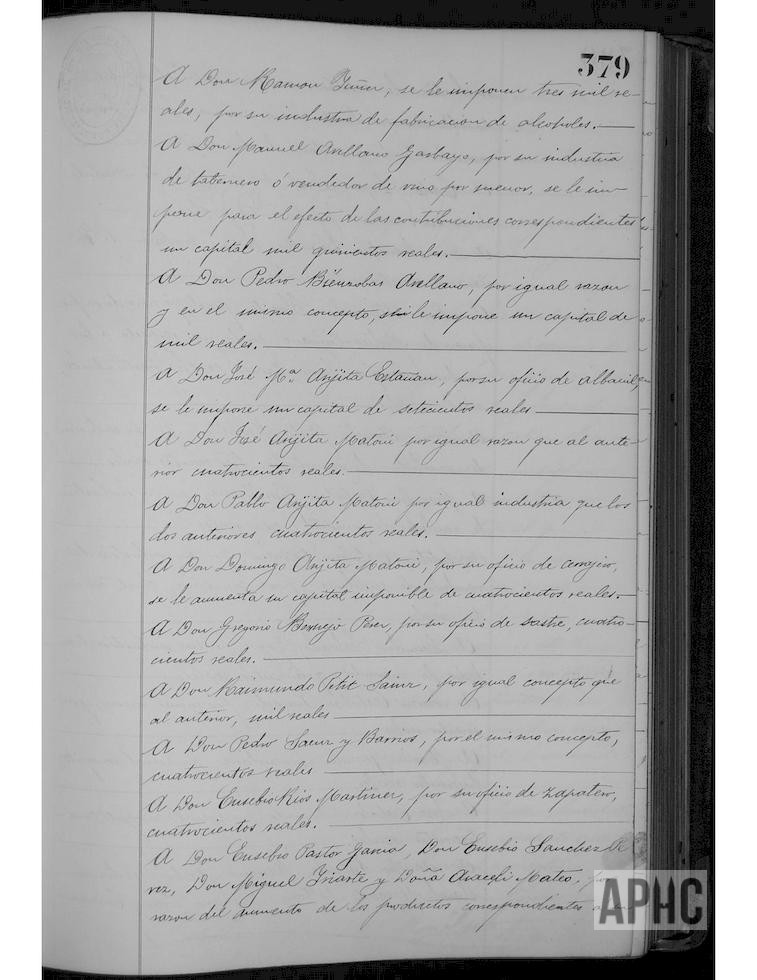 379
A Don Ramon, se le imponen tres mil re-
ales, por su industria de fabricacion de alcoholes.
A Don Manuel Arellano Garbayo, por su industria
de tabernero ó vendedor de vino por menor, se le im-
pone para el efecto de las contribuciones correspondientes
un capital mil quinientos reales.
A Don Pedro Bienzobas Arellano, por igual razon
y en el mismo concepto, se le impone un capital de
mil reales.
A Don José Mª Anjita Estañan, por su oficio de albañil,
se le impone un capital de setecientos reales
A Don José Anjita por igual razon que al ante-
rior cuatrocientos reales.
A Don Pablo Anjita por igual industria que los
dos anteriores cuatrocientos reales.
A Don Domingo Anjita, por su oficio de cerrajero,
se le aumenta un capital imponible de cuatrocientos reales.
A Don Gregorio Bermejo Perez, por su oficio de sastre, cuatro-
cientos reales.
A Don Raimundo Petit Sainz, por igual concepto que
al anterior, mil reales
A Don Pedro Saenz y Barrios, por el mismo concepto,
cuatrocientos reales
A Don Eusebio Rios Martinez, por su oficio de zapatero,
cuatrocientos reales.
A Don Eusebio Pastor Garcia, Don Eusebio Sanchez
rez, Don Miguel Iriarte y Doña Araceli Mateo, por
razon del aumento de los productos correspondientes
APHC